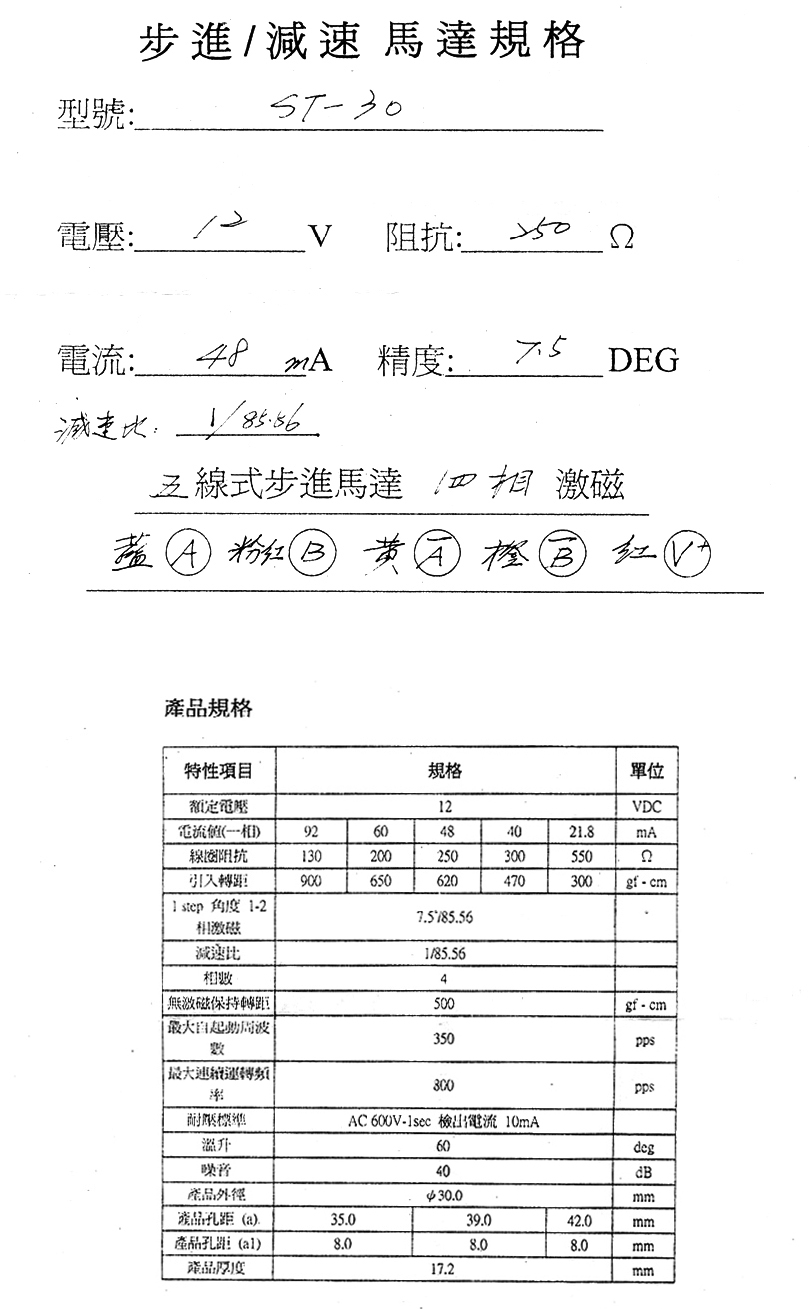 步進/減速 馬達規格
型號: ST-30
電壓: 12 V 阻抗: 250 Ω
電流: 48 mA 精度: 7.5 DEG
減速比: 1/85.56
五線式步進馬達 四相 激磁
藍 A 粉紅 B 黃 A̅ 橙 B̅ 紅 V+
產品規格
特性項目 規格 單位
額定電壓 12 VDC
電流值(一相) 92 60 48 40 21.8 mA
線圈阻抗 130 200 250 300 550 Ω
引入轉距 900 650 620 470 300 gf - cm
1 step 角度 1-2
相激磁 7.5°/85.56
減速比 1/85.56
相數 4
無激磁保持轉距 500 gf - cm
最大自起動周波
數 350 pps
最大連續運轉頻
率 800 pps
耐壓標準 AC 600V-1sec 檢出電流 10mA
溫升 60 deg
噪音 40 dB
產品外徑 φ30.0 mm
產品孔距 (a) 35.0 39.0 42.0 mm
產品孔距 (a1) 8.0 8.0 8.0 mm
產品厚度 17.2 mm